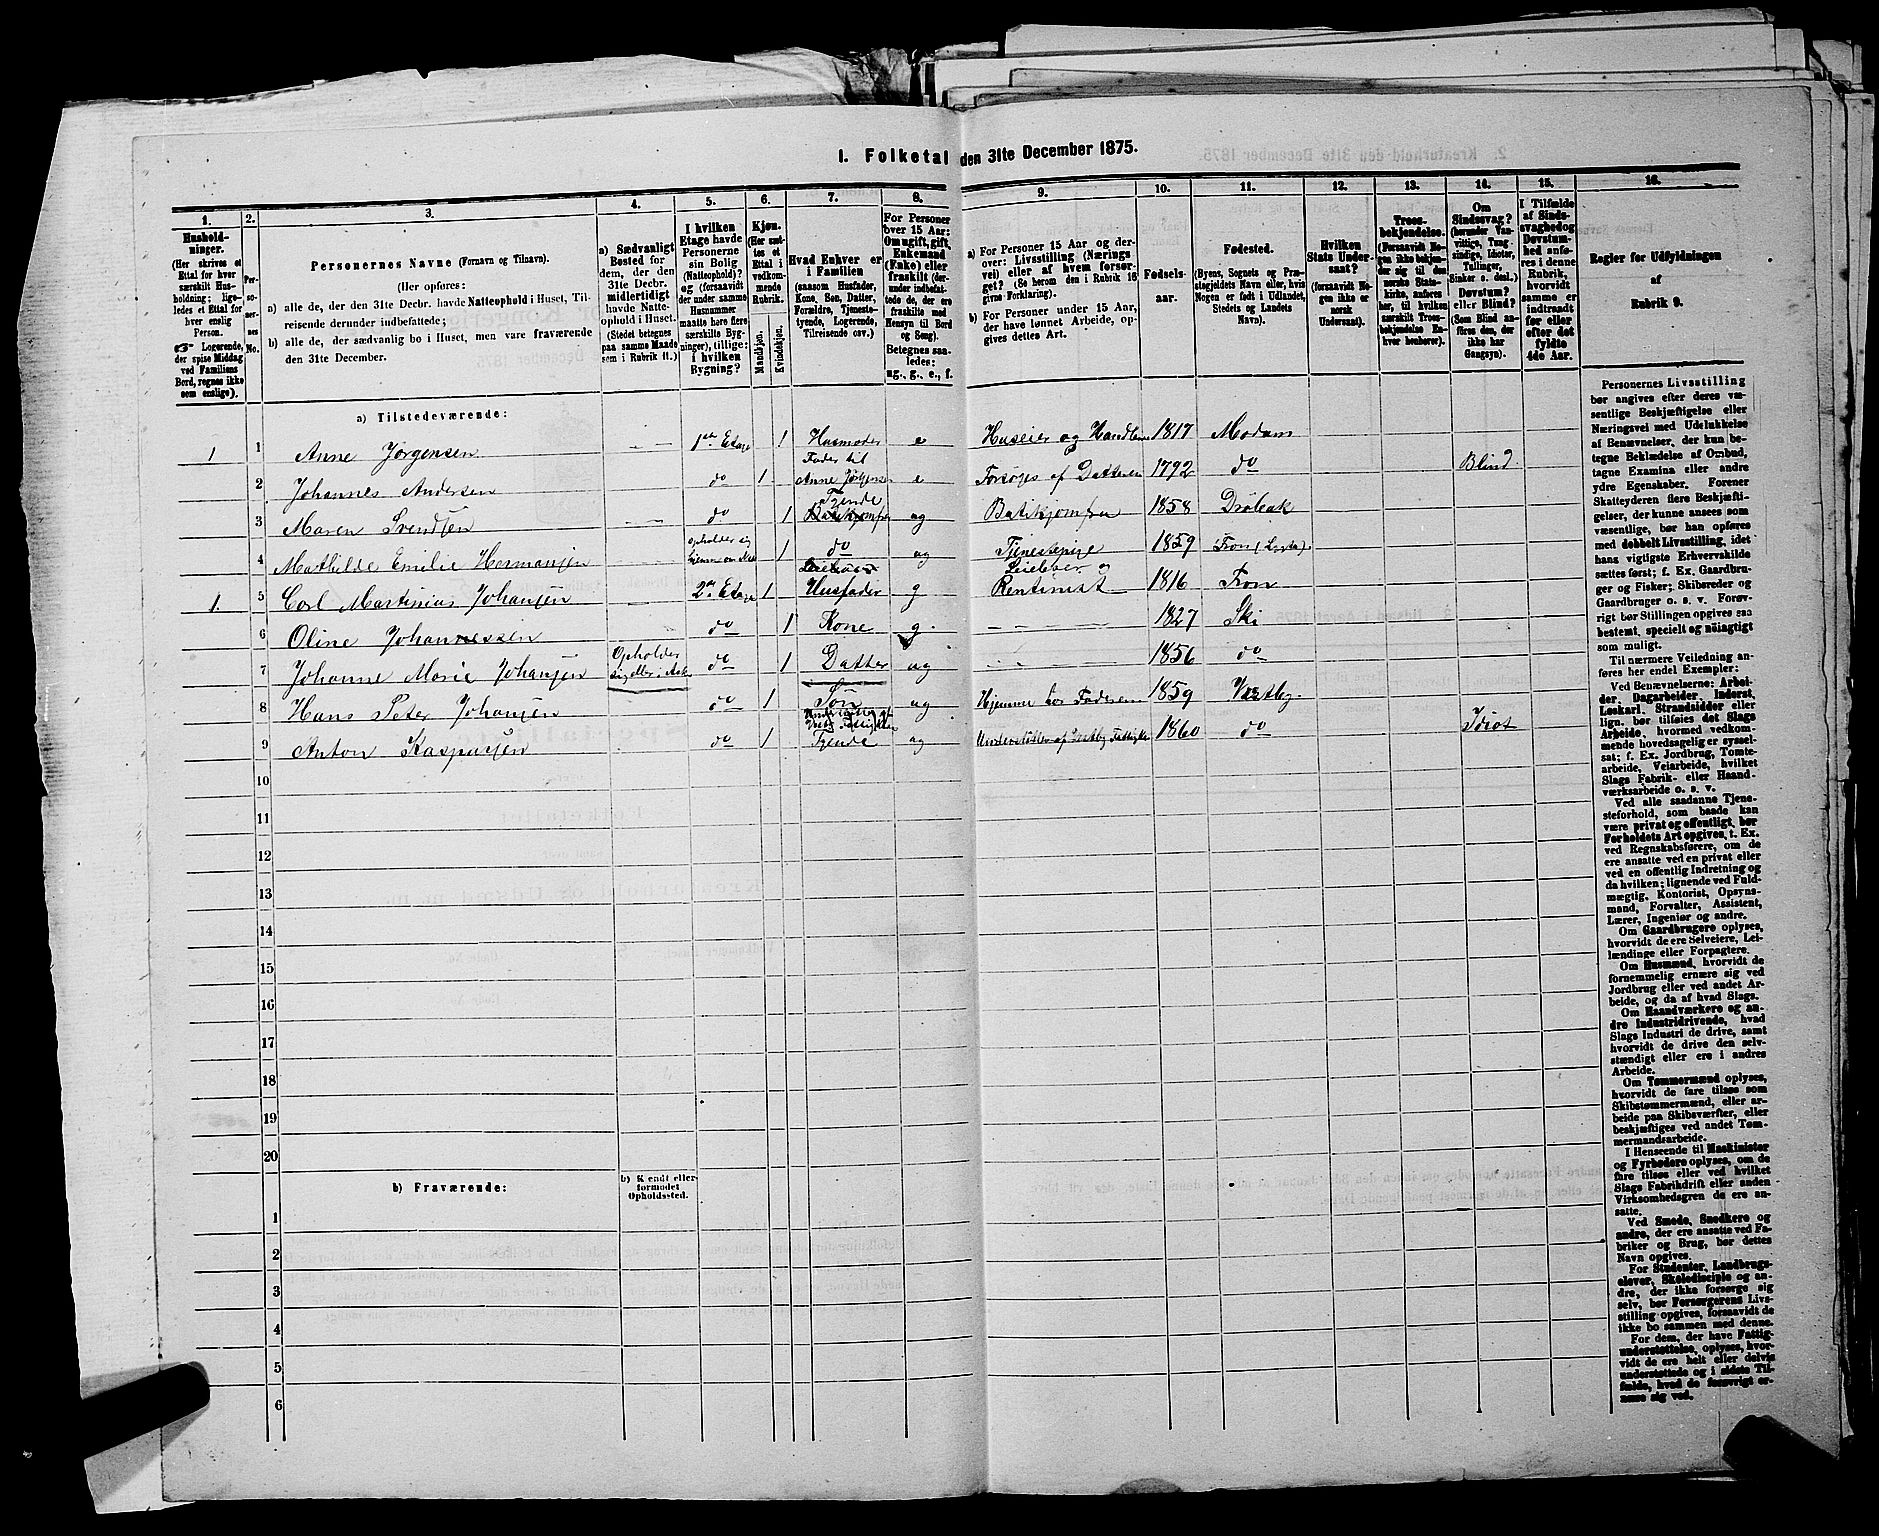 1. Folketal den 31te December 1875.
1. 2. 3. 4. 5. 6. 7. 8. 9. 10. 11. 12. 13. 14. 15. 16.
Husholdninger.
(Her skrives et
Ettal for hver
særskilt Husholdning;
ligeledes et Ettal for
hver enslig
Person.
☞ Logerende,
der spise Middag
ved Familiens
Bord, regnes ikke
som enslige).
Personernes No.
Personernes Navne (Fornavn og Tilnavn).
(Her opføres:
a) alle de, der den 31te Decbr. havde Natteophold i Huset, Tilreisende derunder indbefattede;
b) alle de, der sædvanlig bo i Huset, men vare fraværende
den 31te December.
a) Sædvanligt
Bosted for
dem, der den
31te Decbr.
midlertidigt
havde Natteophold i Huset.
(Stedet betegnes
paa samme Maade
som i Rubrik 11.)
I hvilken
Etage havde
Personerne
sin Bolig
(Natteophold)?
og (forsaavidt
der under samme
Husnummer
maatte høre flere
særskilte Bygninger), tillige:
i hvilken
Bygning?
Kjøn.
(Her sættes et
Ettal i
vedkommende
Rubrik.
Mandkjøn.
Kvindekjøn.
Hvad Enhver er
i Familien
(saasom Husfader,
Kone, Søn, Datter,
Forældre, Tjenestetyende, Logerende,
Tilreisende osv.)
For Personer
over 15 Aar:
Om ugift, gift,
Enkemand
(Enke) eller
fraskilt (derunder indbefattede de, der ere
fraskilte med
Hensyn til Bord
og Seng).
Betegnes saaledes:
ug., g., e., f.
a) For Personer 15 Aar og derover: Livsstilling (Næringsvei) eller af hvem forsørget? (Se herom den i Rubrik 16
givne Forklaring).
b) For Personer under 15 Aar,
der have lønnet Arbeide, opgives dettes Art.
Fødselsaar.
Fødested.
(Byens, Sognets og Præstegjeldets Navn eller, hvis
Nogen er født i Udlandet,
Stedets og Landets
Navn).
Hvilken
Stats Undersaat?
(forsaavidt Nogen ikke er
norsk
Undersaat).
Troesbekjendelse.
(Forsaavidt Nogen ikke bekjender sig til den
norske Statskirke, anføres
her, til hvilken
særskilt Troesbekjendelse Enhver henhører).
Om
Sindssvag?
(herunder Vanvittige, Tungsindige, Idioter,
Tullinger,
Sinker o. desl.)
Døvstum?
eller Blind?
(Som Blind anføres den, der
ikke har
Gangsyn).
I Tilfælde
af Sindssvaghed og
Døvstumhed anføres i denne
Rubrik,
hvorvidt
samme er
indtraadt
før eller
efter det
fyldte
4de Aar.
Regler for Udfyldningen
af
Rubrik 9.
a) Tilstedeværende:
1 1 Anne Jørgensen 1ste Etage 1 Husmoder e Huseier og Handlerie 1817 Modum
2 Johannes Andersen do 1 Fader til Anne Jørgens. e Forsøges af Datteren 1792 do Blind
3 Maren Svendsen do 1 Tjende ug Butikjomfru 1858 Drøbak
4 Mathilde Emilie Hermansen 1 do ug Tjenestepige 1859 Fron
1. 5 Carl Martinius Johansen 2den Etage 1 Husfader g Leieboer og Rentinist 1816 Fron
6 Oline Johannessen do 1 Kone g. 1827 Ski
7 Johanne Marie Johansen Opholder sig do 1 Datter ug 1856 do
8 Hans Peter Johansen do 1 Søn ug Hjemme hos Faderen 1859 Vestby
9 Anton Kaspersen do 1 Tjende ug Understøttes af Vestby 1860 do Idiot
10
11
12
13
14
15
16
17
18
19
20
b) Fraværende:
b) Kjendt eller
formodet
Opholdssted.
1
2
3
4
5
6
Personernes Livsstilling
bør angives efter deres væsentlige Beskjæftigelse eller
Næringsvei med Udelukkelse
af Benævnelser, der kun betegne Beklædelse af Ombud,
tagne Examina eller andre
ydre Egenskaber. Forener
Skatteyderen flere Beskjæftigelser, der kunne ansees som
væsentlige, bør han opføres
med dobbelt Livsstilling, idet
hans vigtigste Erhvervskilde
sættes først; f. Ex. Gaardbruger og Fisker; Skibsreder og
Gaardbruger o. s. v. Forøvrigt bør Stillingen opgives saa
bestemt, specielt og nøiagtigt
som muligt.
Til nærmere Veiledning anføres her endel Exempler:
Ved Benævnelserne: Arbeider, Dagarbeider, Inderst,
Løskarl, Strandsidder eller
lign. bør tilføies det Slags
Arbeide, hvormed vedkommende hovedsagelig er sysselsat; f. Ex. Jordbrug, Tomtearbeide, Veiarbeide, hvilket
Slags Fabrik- eller Haandværksarbeide o. s. v.
Ved alle saadanne Tjenesteforhold, som baade kan
være privat og offentligt, bør
Forholdets Art opgives, t. Ex.
ved Regnskabsførere, om de
ere ansatte ved en privat eller
ved en offentlig Indretning og
da hvilken; lignende ved Fuldmægtig, Kontorist, Opsynsmand, Forvalter, Assistent,
Lærer, Ingeniør og andre.
Om Gaardbrugere oplyses,
hvorvidt de ere Selveiere, Leilændinge eller Forpagtere.
Om Husmænd, hvorvidt de
fornemmelig ernære sig ved
Jordbrug eller ved andet Arbeide, og da af hvad Slags.
Om Haandværkere og andre Industridrivende, hvad
Slags Industri de drive, samt
hvorvidt de drive den selvstændigt eller ere i andres
Arbeide.
Om Tømmermænd oplyses,
hvorvidt de fare tilsøs som
Skibstømmermænd, eller arbeide paa Skibsværfter, eller
beskjæftiges ved andet Tømmermandsarbeide.
I Henseende til Maskinister
og Fyrbødere oplyses, om de
fare tilsøs eller ved hvilket
Slags Fabrikdrift eller anden
Virksomhedsgren de ere ansatte.
Ved Smede, Snedkere og
andre, der ere ansatte ved Fabriker og Brug, bør dettes
Navn opgives.
For Studenter, Landbrugselever, Skoledisciple og andre, der ikke forsørge sig
selv, bør Forsørgerens Livsstilling opgives, forsaavidt de
ikke bo sammen med denne.
For dem, der have Fattigunderstøttelse, oplyses, hvorvidt de ere helt eller delvis
understøttede og i sidste Tilfælde, hvad de forøvrigt ernære sig ved.